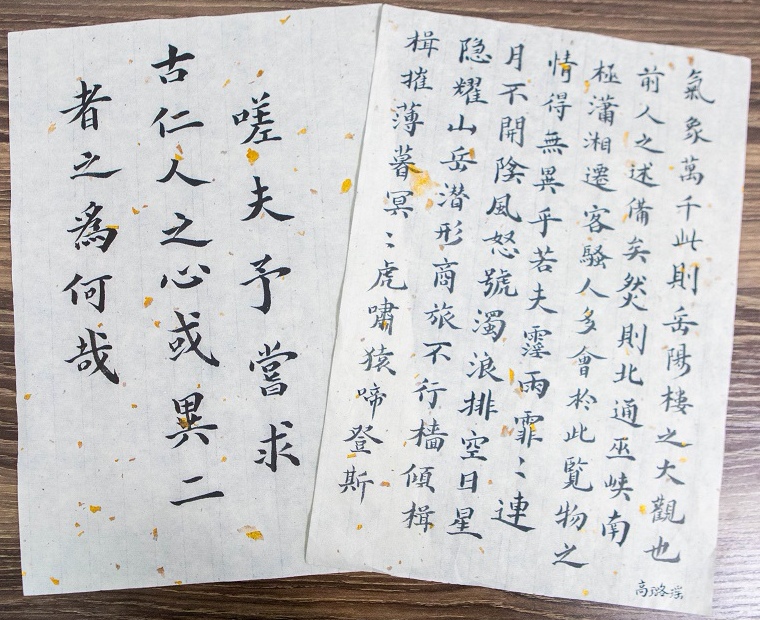 氣象萬千此則岳陽樓之大觀也
前人之述備矣然則北通巫峡南
極瀟湘遷客騷人多會於此覽物之
情得無異乎若夫霪雨霏〻連
月不開陰風怒號濁浪排空日星
隐耀山岳潜形商旅不行檣傾楫
楫摧薄暮冥〻虎嘯猿啼登斯
高璐瑶
嗟夫予嘗求
古仁人之心或異二
者之為何哉